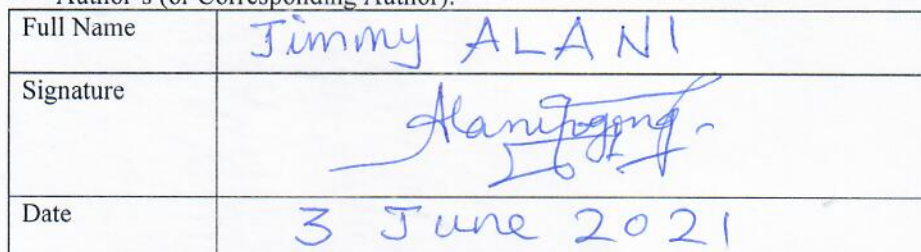 Author's (or Corresponding Author):
Full Name Jimmy ALANI
Signature
Date 3 June 2021